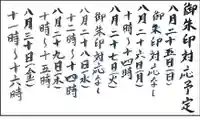 御朱印対応予定
八月二十五日(日)
御朱印対応なし
八月二十六日(月)
十時〜十四時
八月二十七日(火)
御朱印対応なし
八月二十八日(水)
十時〜十四時
八月二十九日(木)
十時〜十五時
八月三十日(金)
十一時〜十六時